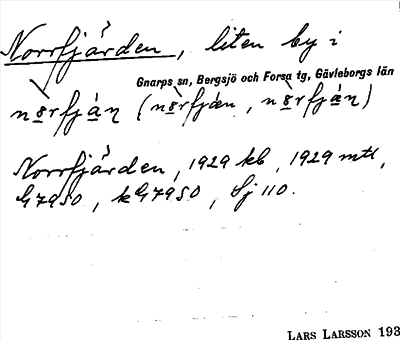 Norrfjärden, liten by i
Gnarps sn, Bergsjö och Forsa tg, Gävleborgs län
nørfjàŋ (nørfjæn, nørfjæŋ)
Norrfjärden, 1929 kb, 1929 mtl,
G7950, kG7950, Sj 110.
LARS LARSSON 193